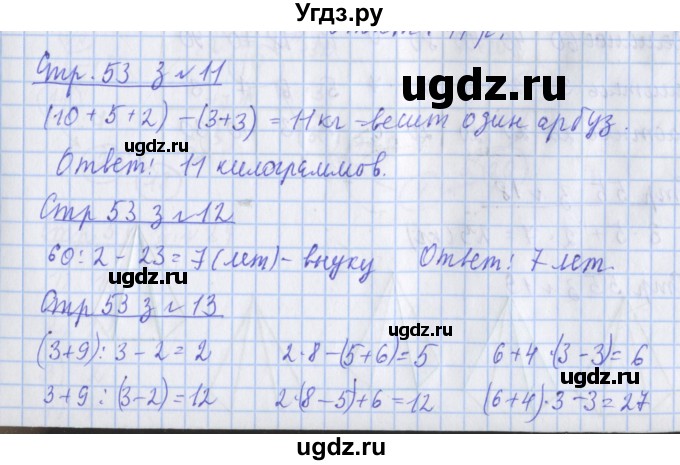 Угдз.ру
Стр. 53 з №11
ugdz.ru
(10 + 5 + 2) - (3+3) = 11 кг - весит один арбуз.
Ответ: 11 килограммов.
ugdz.ru
Стр 53 з №12
60 : 2 - 23 = 7 (лет) - внуку Ответ: 7 лет.
ugdz.ru
Стр 53 з №13
ugdz.ru
(3+9) : 3 - 2 = 2 2·8 - (5+6) = 5 6 + 4 · (3 - 3) = 6
ugdz.ru
3 + 9 : (3 - 2) = 12 2·(8 - 5) + 6 = 12 (6+4)·3 - 3 = 27
ugdz.ru